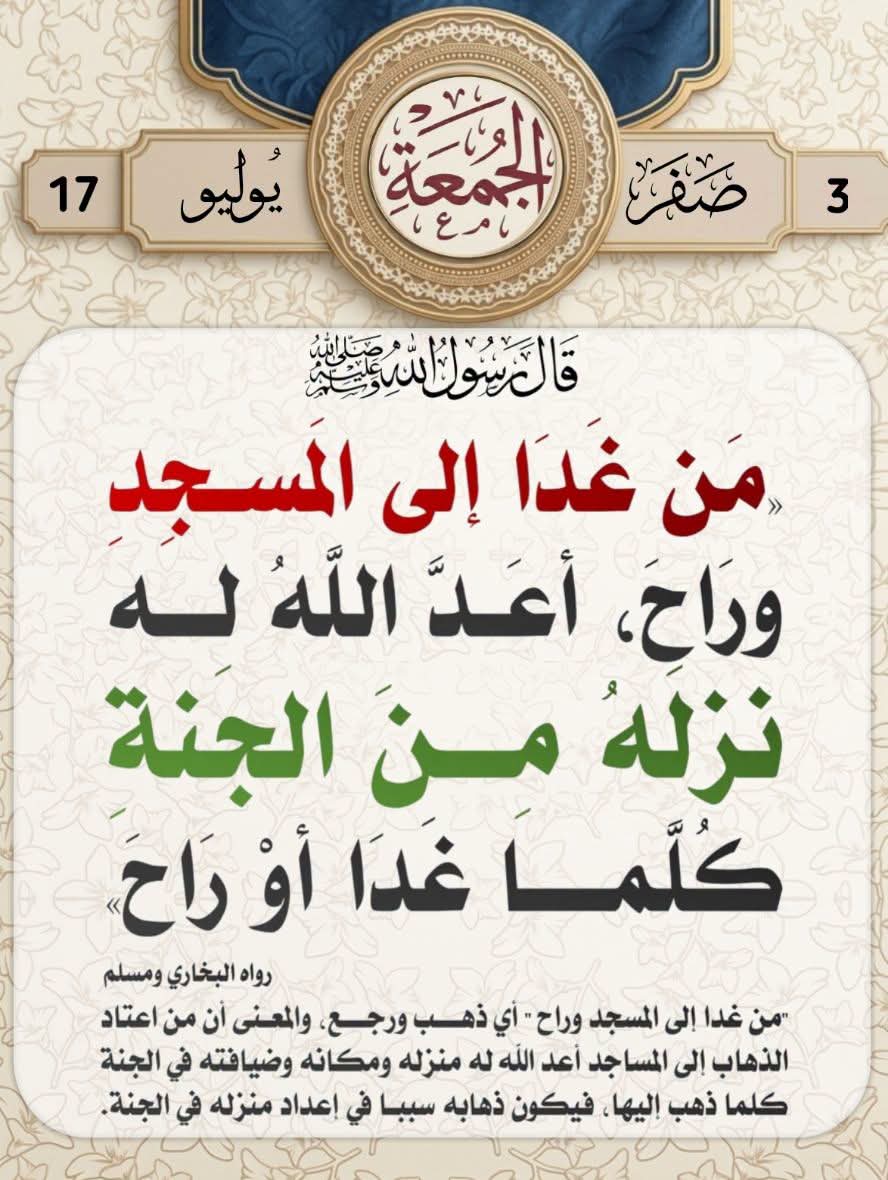 3
صَفَرَ
الجُمُعَةِ
يُوليو
17
قَالَ رَسُولُ اللهِ صَلَّى اللهُ عَلَيْهِ وَسَلَّمَ
«مَن غَدَا إلى المَسجِدِ
ورَاحَ، أعَدَّ اللَّهُ له
نزلهُ مِنَ الجَنةِ
كُلَّما غَدَا أوْ رَاحَ»
رواه البخاري ومسلم
"من غدا إلى المسجد وراح" أي ذهب ورجع، والمعنى أن من اعتاد
الذهاب إلى المساجد أعد الله له منزله ومكانه وضيافته في الجنة
كلما ذهب إليها، فيكون ذهابه سببا في إعداد منزله في الجنة.